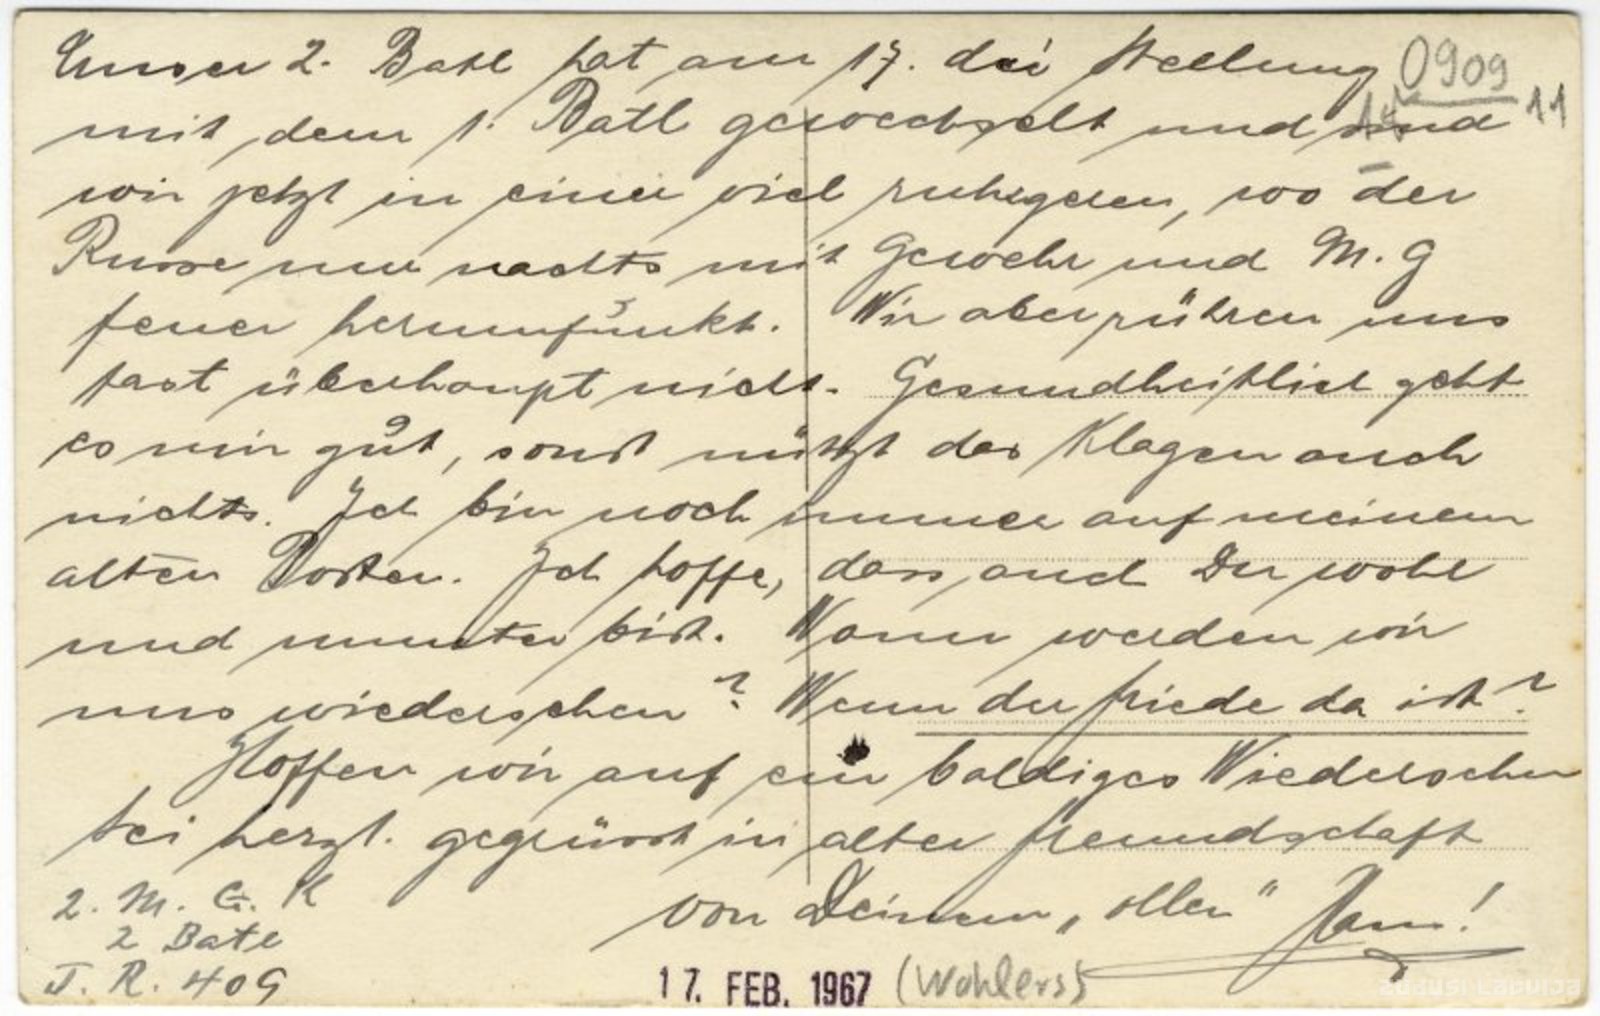 Unser 2. Batl hat am 17. die Stellung
0909
mit dem 1. Batl gewechselt und sind
14 11
wir jetzt in einer viel ruhigeren, wo der
Russe nur nachts mit Gewehr und M. G
feuer herumfunkt. Wir aber rühren uns
fast überhaupt nicht. Gesundheitlich geht
es mir gut, sonst nützt das Klagen auch
nichts. Ich bin noch immer auf meinem
alten Posten. Ich hoffe, dass auch Du wohl
und munter bist. Wann werden wir
uns wiedersehen? Wenn der Friede da ist?
Hoffen wir auf ein baldiges Wiedersehen
Sei herzl. gegrüsst in alter Freundschaft
von Deinem „ollen"
2. M. G. K
2 Batl
J. R. 409
17. FEB. 1967
(Wohlers)
zudusi Latvija